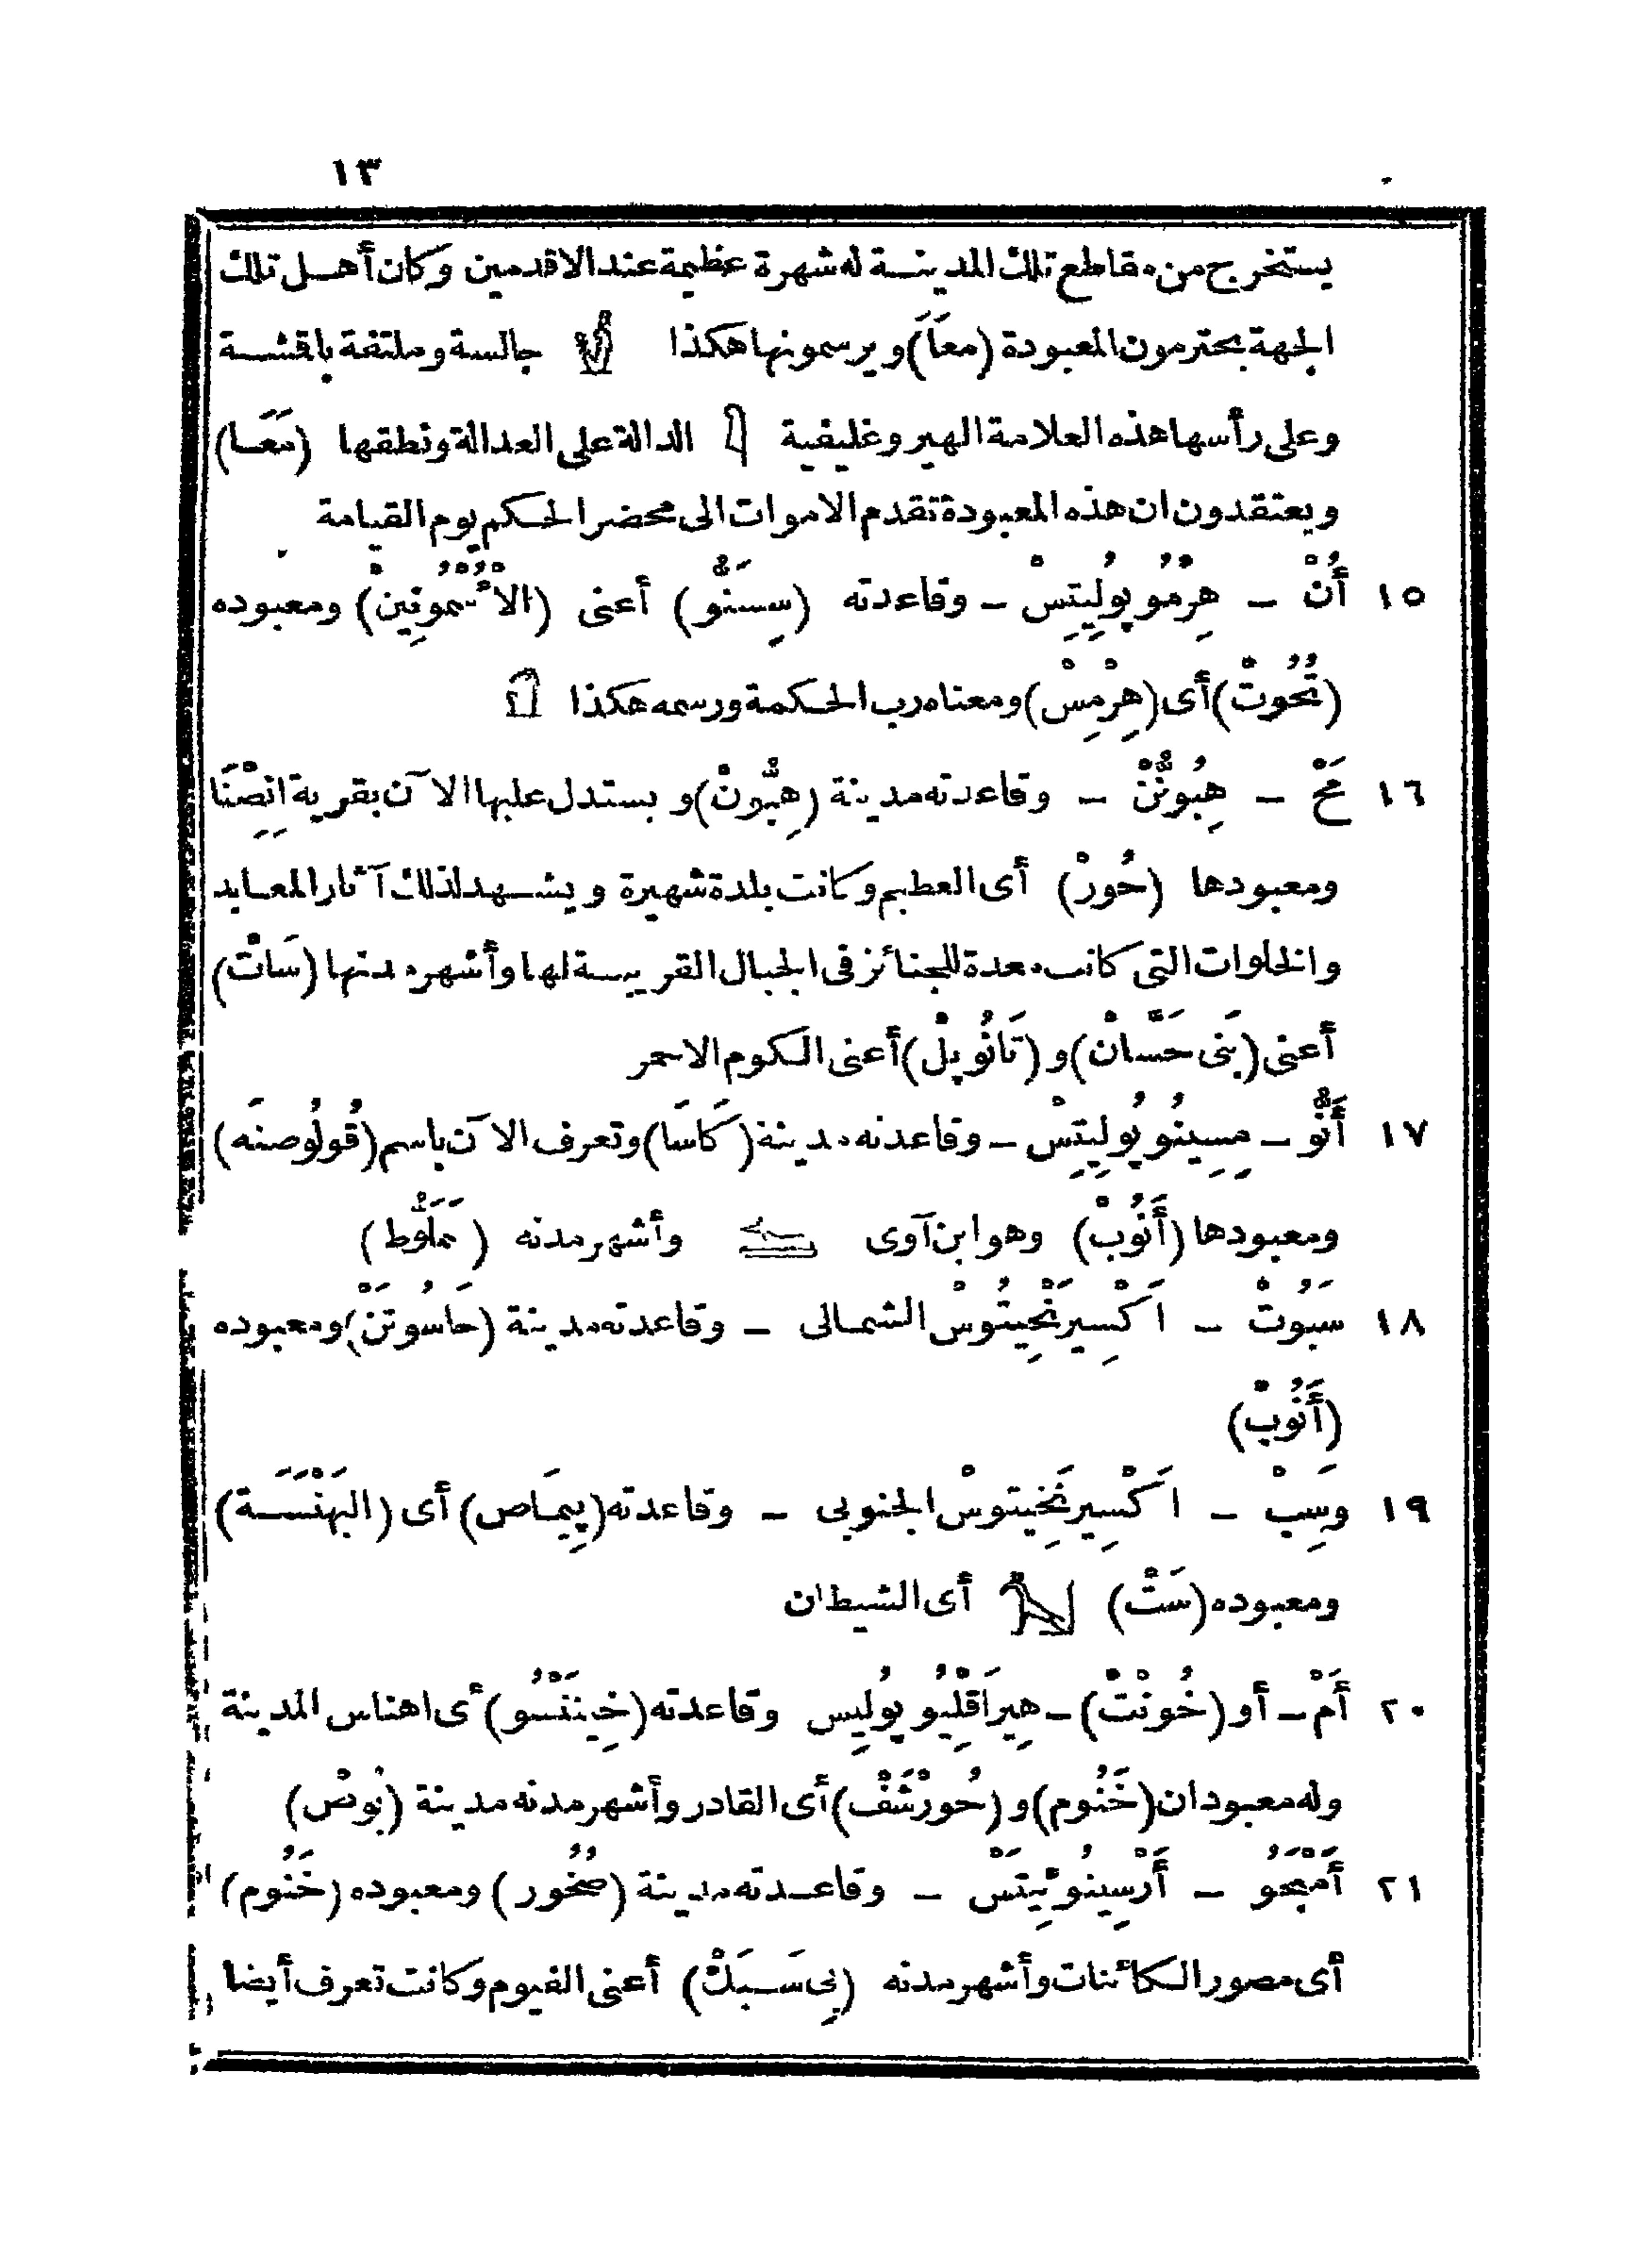 ١٣
يستخرج من مقاطع تلك المدينة له شهرة عظيمة عند الاقدمين وكان أهل تلك
الجهة يحترمون المعبودة (معَاَ) ويرسمونها هكذا جالسة وملتفة باقشة
وعلى رأسها هذه العلامة الهيروغليفية الدالة على العدالة ونطقها (مَعَا)
ويعتقدون ان هذه المعبودة تقدم الاموات الى محضر الحكم يوم القيامة
١٥ أُنْ - هِرْمُو پُولِيتِسْ - وقاعدته (سِسَنُّو) أعنى (الاُشْمُونِينْ) ومعبوده
(تُحُوتْ) أى (هِرْمِسْ) ومعناه رب الحكمة ورسمه هكذا
١٦ مَحْ - هِبُونُنْ - وقاعدته مدينة (هِبُّونْ) ويستدل عليها الآن بقرية انِصِنَا
ومعبودها (حُورْ) أى العظيم وكانت بلدة شهيرة ويشهد لذلك آثار المعابد
والخلوات التى كانت معدة للجنائز فى الجبال القريبة لها وأشهر مدنها (سَاتْ)
أعنى (بَنى حَسَّانْ) و (تَانُوبِلْ) أعنى الكوم الاحمر
١٧ أَنُّو - مِسِينُو پُولِيتِسْ - وقاعدته مدينة (كَاسَا) وتعرف الآن باسم (قُولُوصنَه)
ومعبودها (أَنُوبْ) وهو ابن آوى وأشهر مدنه (سَمَلُّوط)
١٨ سَبُوتْ - اَكْسِيرَنْخِيتُوسْ الشمالى - وقاعدته مدينة (حَاسُوتَنْ) ومعبوده
(أَنُوبْ)
١٩ وَسِبْ - اَكْسِيرنَخِيتوسْ الجنوبى - وقاعدته (پِيمَاص) أى (البَهْنَسَة)
ومعبوده (سَتْ) أى الشيطان
٢٠ أَمْ - أو (خُونْتْ) - هِيرَاقْلِيُو پُولِيس وقاعدته (خِينَنْسُو) أى اهناس المدينة
وله معبودان (خَنُوم) و (حُورْشَفْ) أى القادر وأشهر مدنه مدينة (بُوصْ)
٢١ أَمْبَحُو - أَرْسِينُوئِيتَسْ - وقاعدته مدينة (صُخُور) ومعبوده (خَنُوم)
أى مصور الكائنات وأشهر مدنه (بِى سَبَكْ) أعنى الفيوم وكانت تعرف أيضا